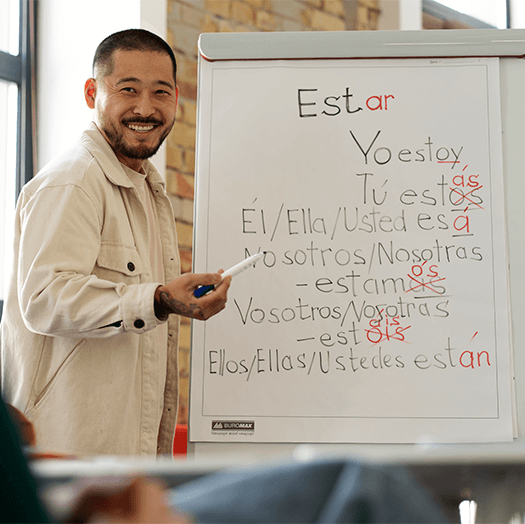 Estar
Yo estoy
ás
Tú estos
Él/Ella/Usted esá
Nosotros/Nosotras
os
-estamas
Vosotros/Vosotras
áis
-estois
Ellos/Ellas/Ustedes están
BUROMAX